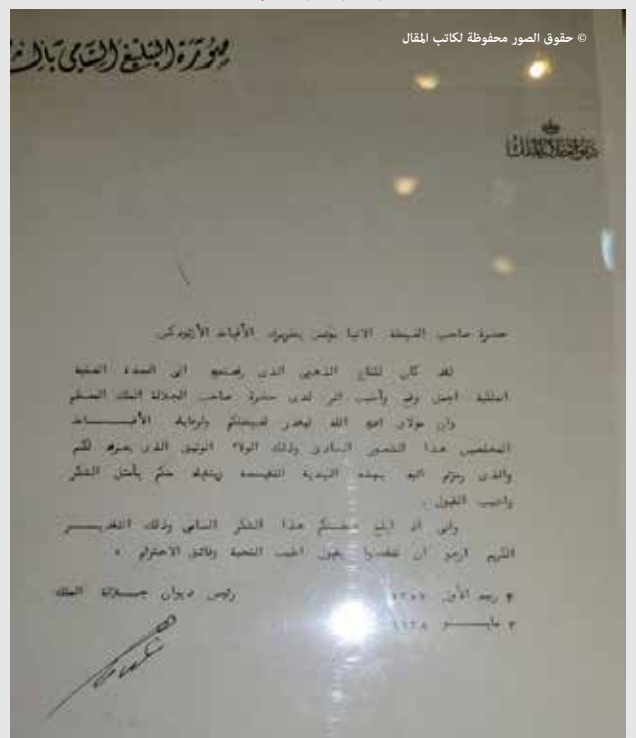 © حقوق الصور محفوظة لكاتب المقال
صورة التبليغ السامى
ديوان جلالة الملك
حضرة صاحب الغبطة الانبا يؤنس بطريرك الأقباط الأرثوذكس
لقد كان للتاج الذهبى الذى الى السدة العلية
الملكية اجمل وقع وأطيب اثر لدى حضرة صاحب الجلالة الملك المعظم
وان مولاى الله ليقدر لغبطتكم ولرعاياه الأقبـــاط
المخلصين هذا الشعور السادى وذلك الولاء الوثيق الذى لكم
والذى اليه بهذه الهدية النفيسة منكم بأجمل الشكر
وأطيب القبول .
وانى اذ ابلغ هذا الشكر السامى وذلك التقديـــر
الكريم ارجو ان تتفضلوا بقبول اطيب التحية وفائق الاحترام ،
٣ ربيع الأول ١٣٥٧ رئيس ديوان جـــلالة الملك
٣ مايـــو ١٩٣٨